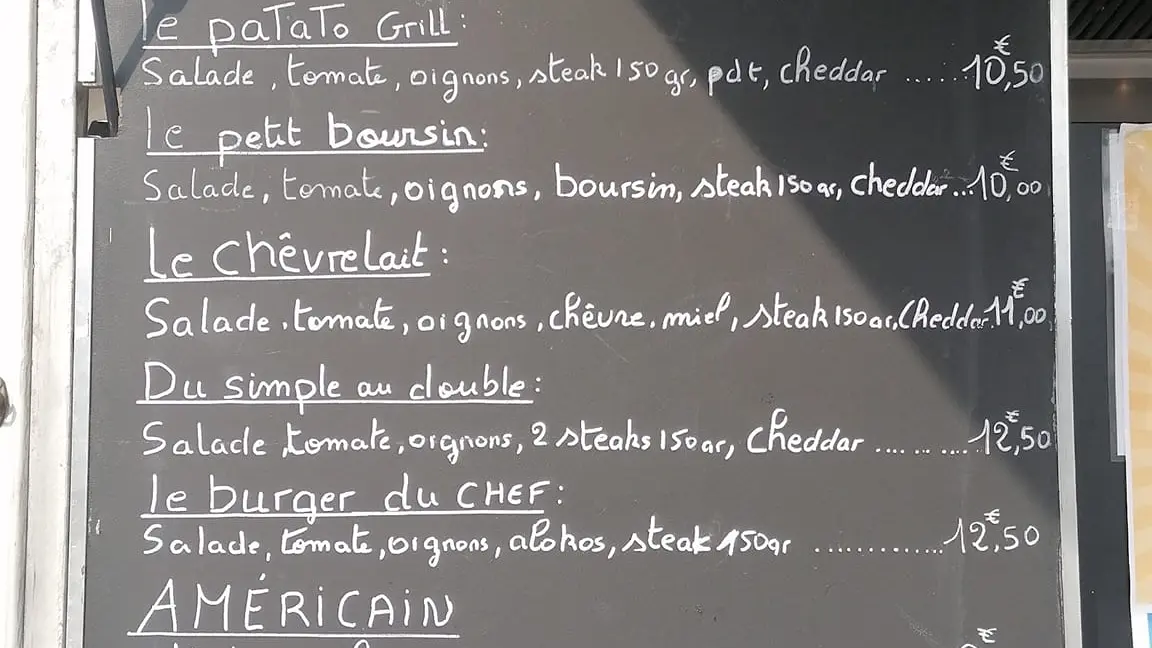 le paTaTo Grill:
Salade, tomate, oignons, steak 150 gr, pdt, cheddar ...... 10,50€
le petit boursin:
Salade, tomate, oignons, boursin, steak 150 gr, cheddar... 10,00€
Le Chêvrelait:
Salade, tomate, oignons, chêvre, miel, steak 150 gr, Cheddar 11,00€
Du simple au double:
Salade, tomate, oignons, 2 steaks 150 gr, Cheddar .... .. .... 12,50€
le burger du CHEF:
Salade, tomate, oignons, alokos, steak 150gr ............. 12,50€
AMÉRiCAiN
€